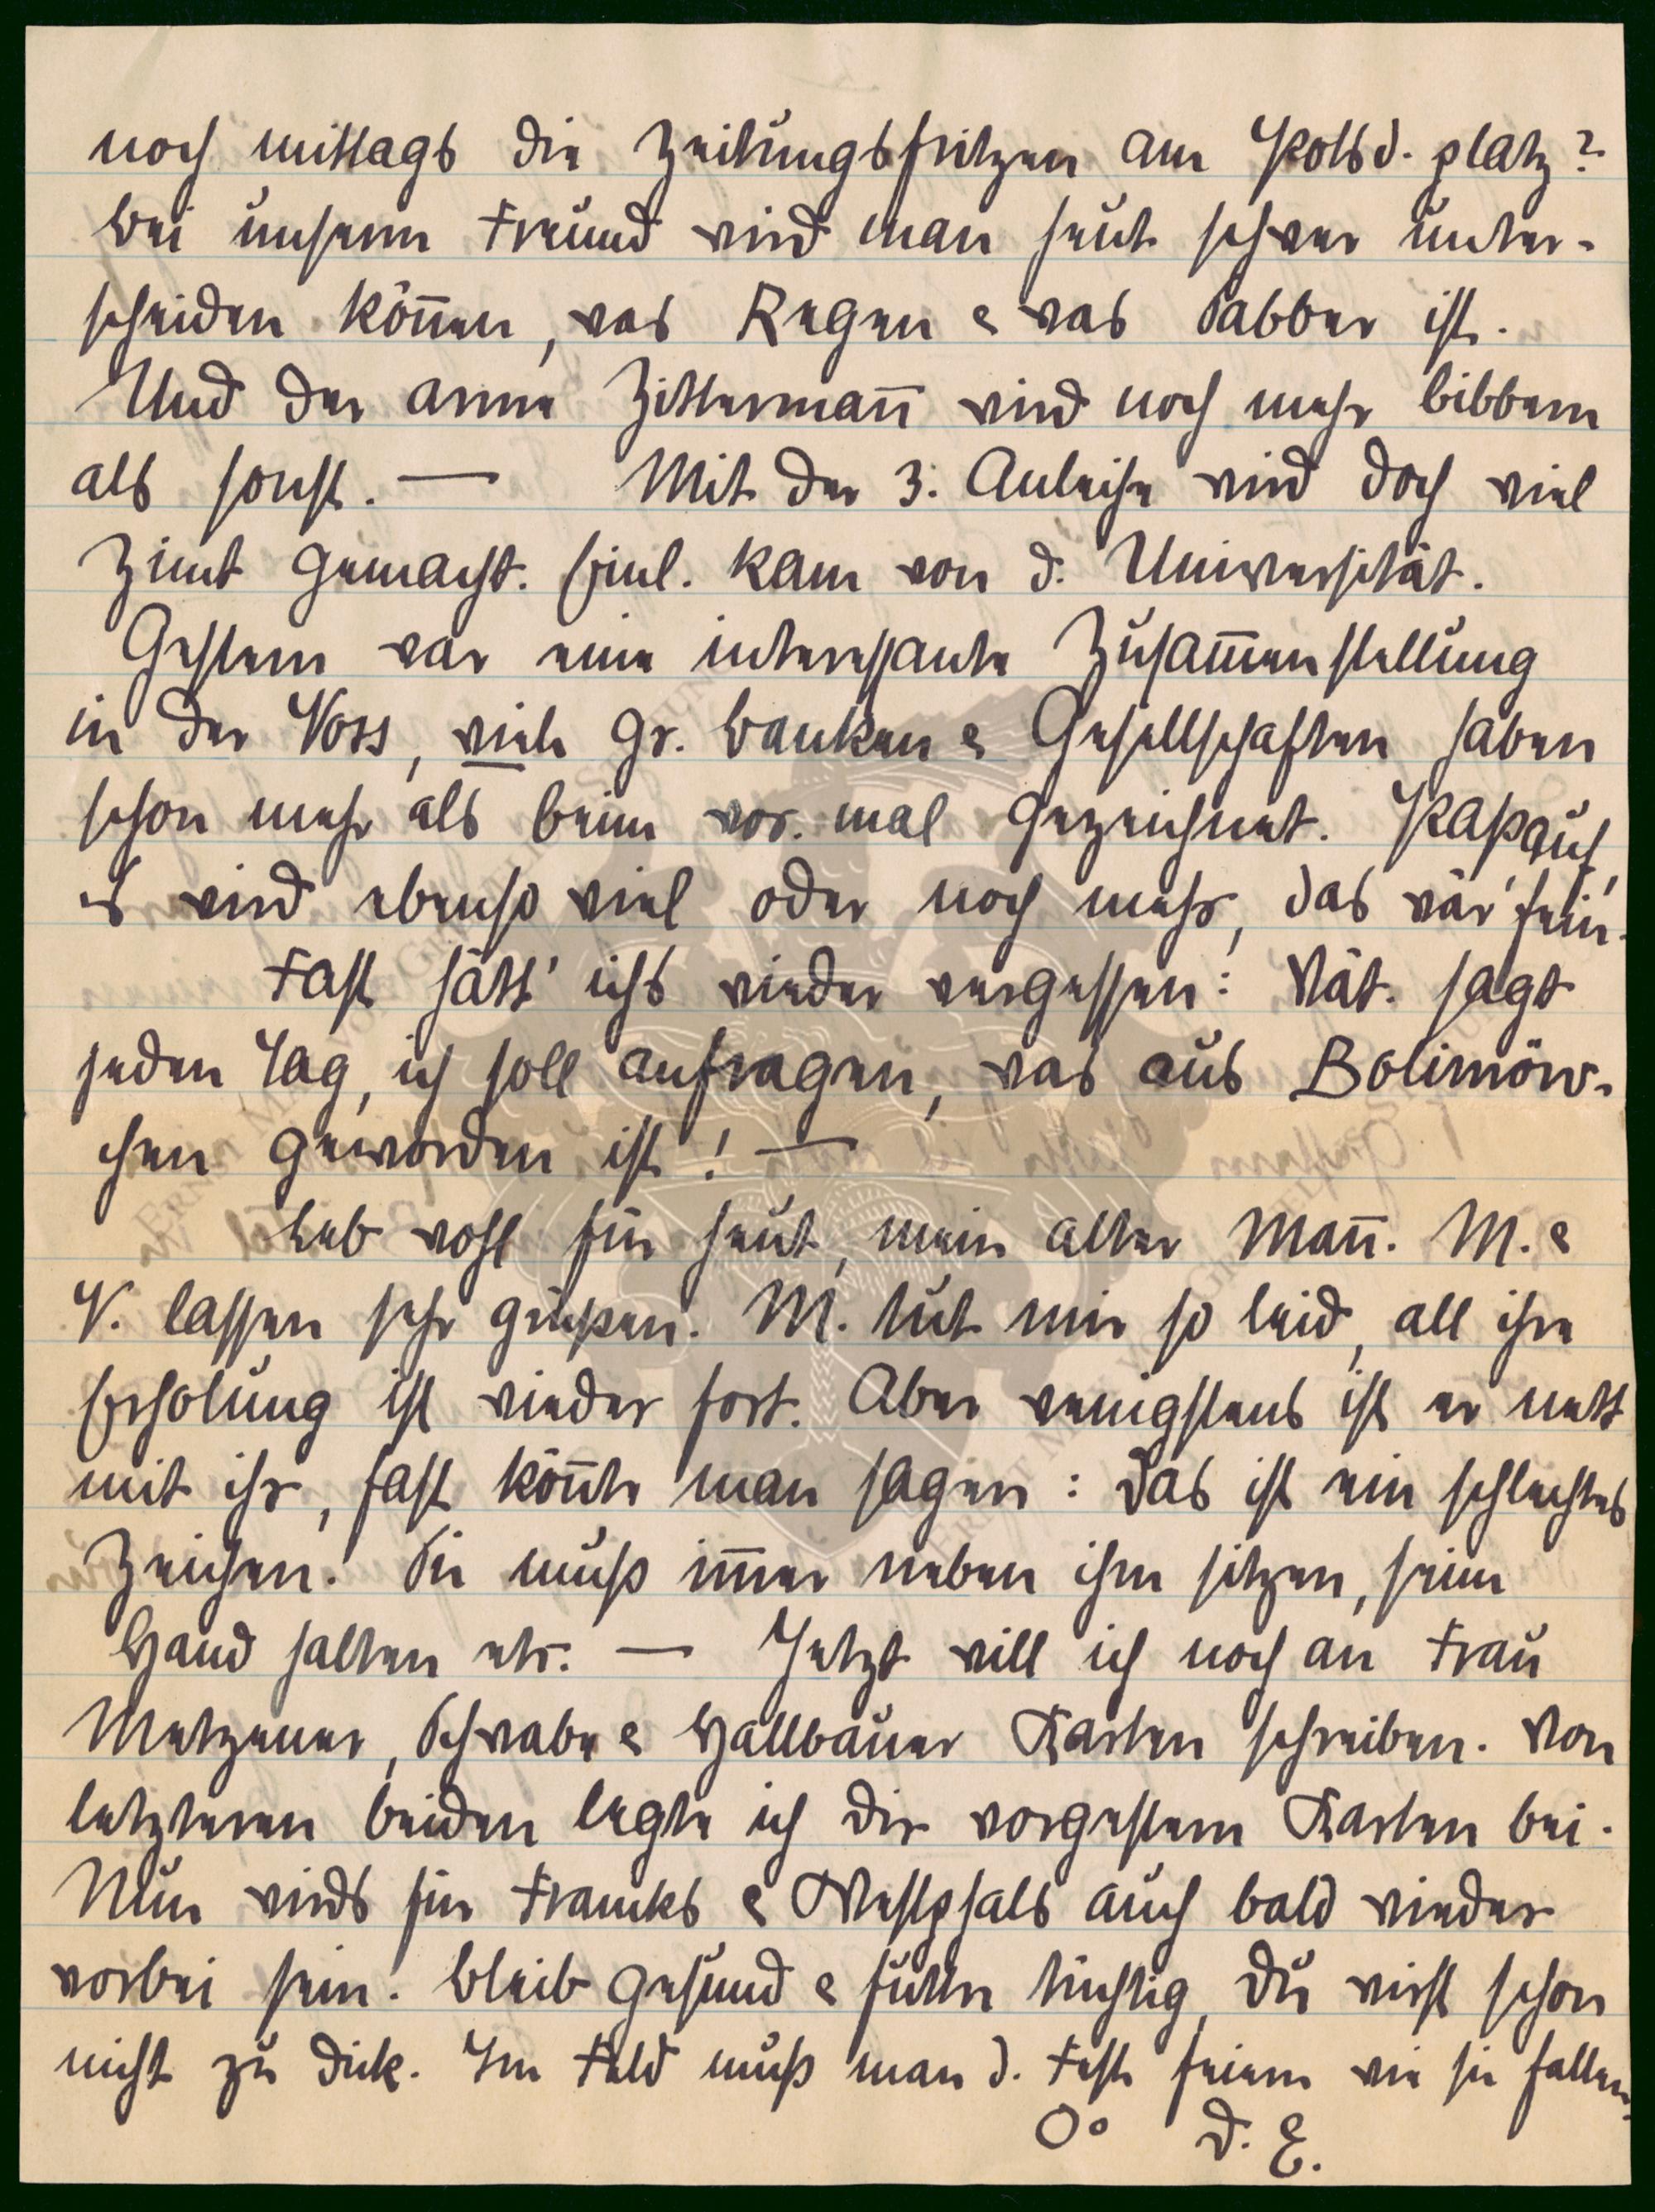 noch mittags die Zeitungsfritzen am Potsd. platz?
Bei unserm Freund wird man heut schwer unter-
scheiden kön̄en, was Regen & was Sabber ist.
Und der arme Zitterman̄ wird noch mehr bibbern
als sonst. — Mit der 3. Anleihe wird doch viel
Zimt gemacht. Einl. kam von d. Universität.
Gestern war eine interessante Zusam̄enstellung
in der Voss, viele gr. Banken & Gesellschaften haben
schon mehr als beim vor. mal gezeichnet. Paßauf,
es wird ebenso viel oder noch mehr, das wär' fein.
Fast hätt' ichs wieder vergessen: Vat. sagt
jeden Tag, ich soll anfragen, was aus Bolimöw-
chen geworden ist! —
Leb wohl für heut, mein alter Man̄. M. &
V. lassen sehr grüßen. M. tut mir so leid, all ihre
Erholung ist wieder fort. Aber wenigstens ist er nett
mit ihr, fast kön̄te man sagen: das ist ein schlechtes
Zeichen. Sie muß im̄er neben ihm sitzen, seine
Hand halten etc. — Jetzt will ich noch an Frau
Metzener, Schwabe & Hallbauer Karten schreiben. Von
letzteren beiden legte ich dir vorgestern Karten bei.
Nun wirds für Francks & Westphals auch bald wieder
vorbei sein. Bleib gesund & futtre tüchtig, Du wirst schon
nicht zu dick. Im Feld muß man d. Feste feiern wie sie fallen.
Oo D. E.
ERNST MAY VON GRELLE STIFTUNG